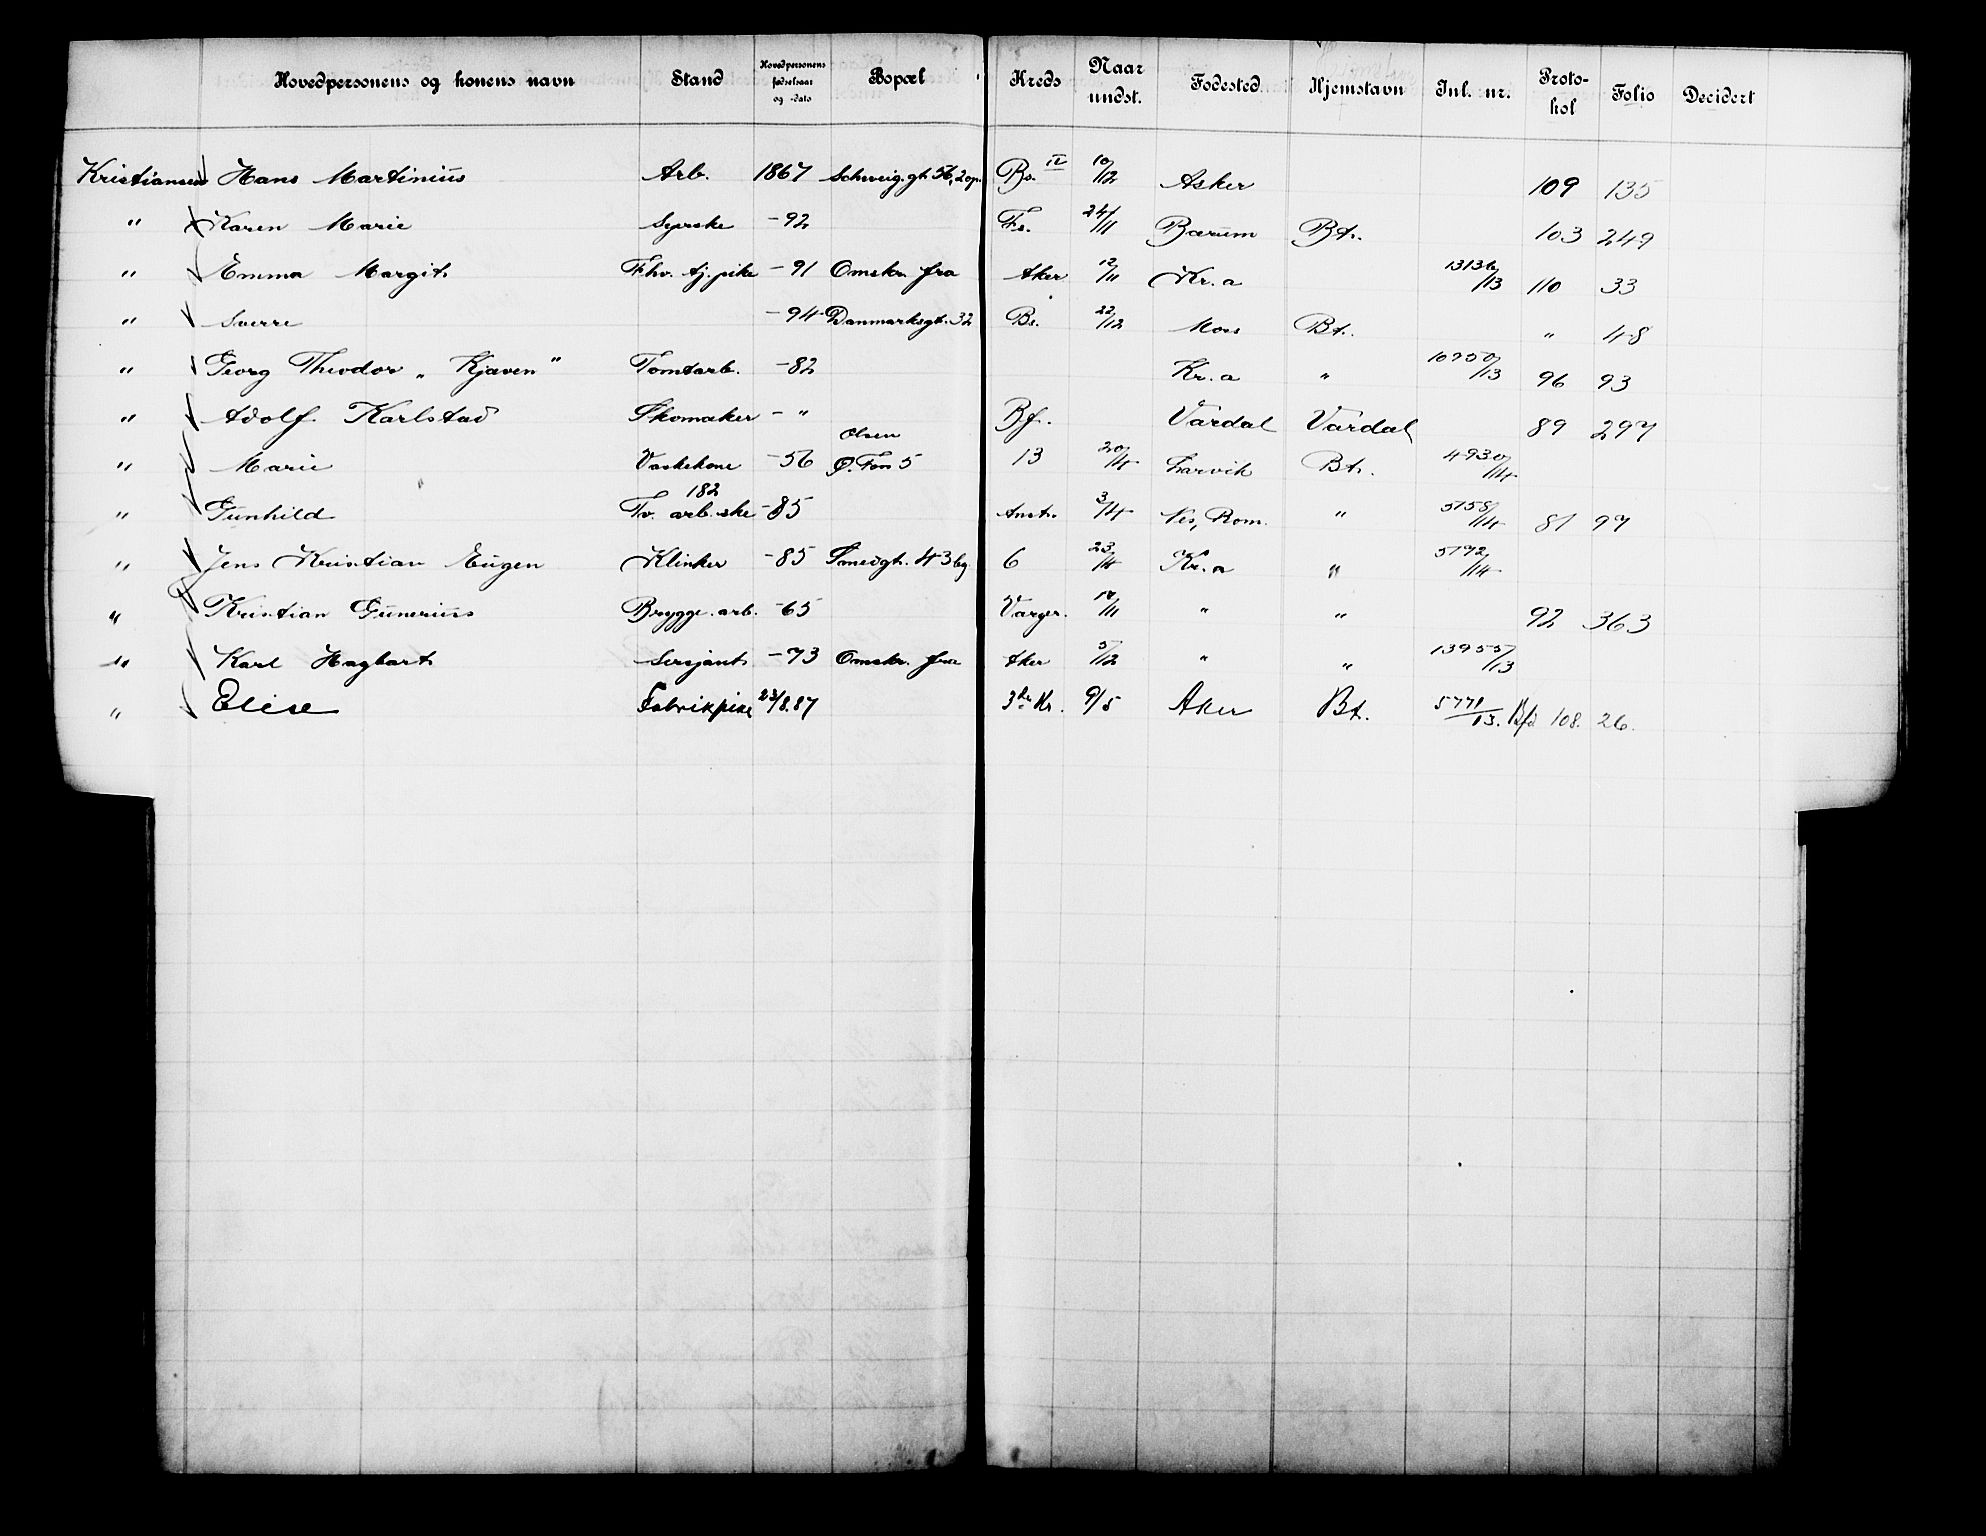 Hovedpersonens og konens navn Stand Hovedpersonens fødselsaar og -dato Bopæl Kreds Naar undst. Fødested Hjemstavn Jnl. nr. Protokol Folio Decidert
Kristiansen Hans Martinius Arb. 1867 Schweig.gt. 56, 2 op. Bs. IV 10/12 Asker 109 135
" Karen Marie Syerske -92 Fs. 24/11 Bærum Bt. 103 249
" Emma Margit Fhv. tj.pike -91 Omskr. fra Aker 12/11 Kr.a 13136/13 110 33
" Sverre -94 Danmarksgt. 32 Bs. 22/12 Moss Bt. " 48
" Georg Theodor „Kjaven" Tomtarb. -82 Kr.a " 10950/13 96 93
" Adolf Karlstad Skomaker - " Bf. Vardal Vardal 89 297
" Marie Vaskekone -56 Olsen Ø. Foss 5 13 20/4 Larvik Bt. 4930/14
" Gunhild Tv. arb.ske 182 -85 Anst. 3/14 Nes, Rom. " 5158/14 81 97
" Jens Kristian Eugen Klinker -85 Smedgt. 43 bg 6 23/4 Kr.a " 5192/14
" Kristian Gunerius Brygge.arb. -65 Varger. 14/11 " " 92 363
" Karl Hagbart Sersjant -73 Omskr. fra Aker 5/12 " " 13955/13
" Elise Fabrikpike 23/8.87 3die Kr. 9/5 Aker Bt. 5771/13. Bfd 108. 26.